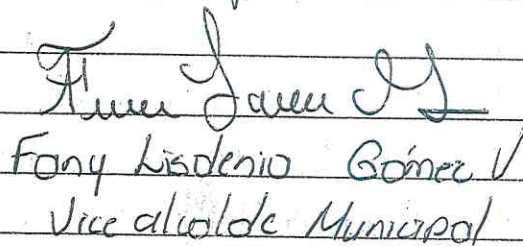 Fony Lisdenio Gómez V
Vice alcalde Municipal